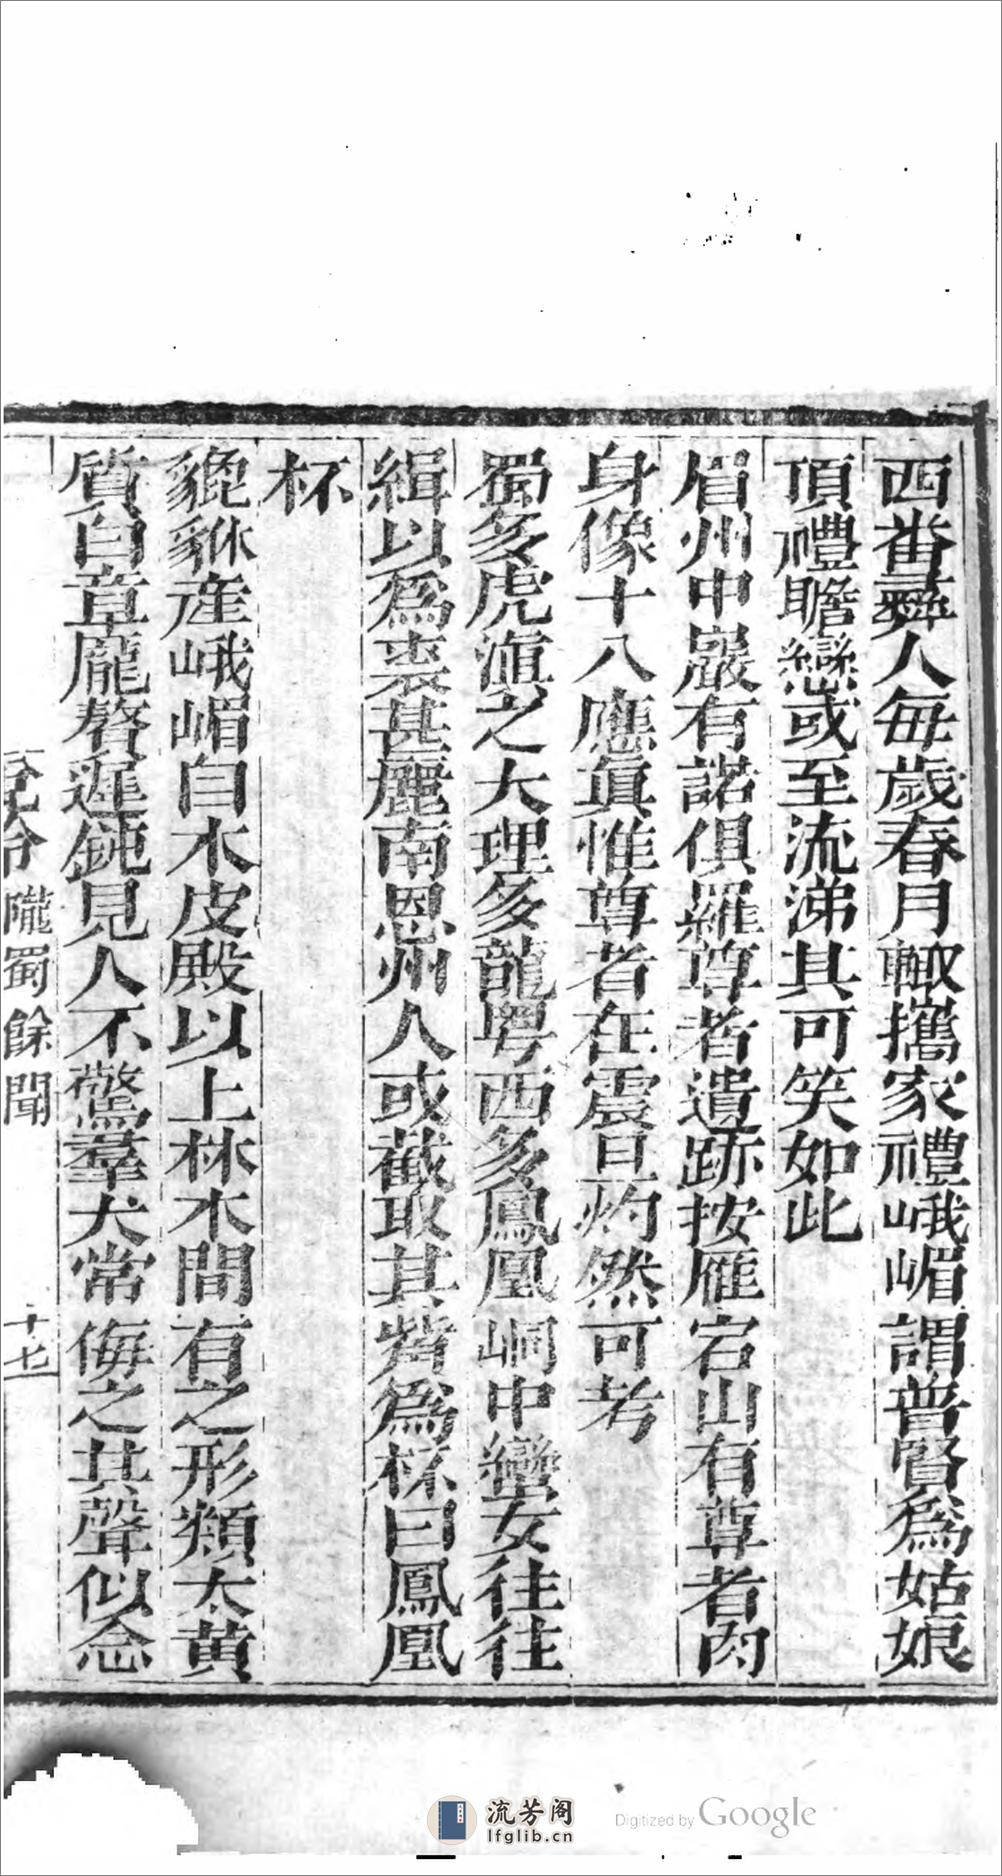 西畨彝人每歲春月輙攜家禮峨嵋謂普賢爲姑娘
頂禮瞻戀或至流涕其可笑如此
眉州中巖有諾俱羅尊者遺跡按雁宕山有尊者肉
身像十八應眞惟尊者在震旦灼然可考
蜀多虎滇之大理多龍粤西多鳳凰峒中蠻女往往
緝以爲裘甚麗南恩州人或截取其觜爲杯曰鳳凰
杯
貔貅產峨嵋自木皮殿以上林木間有之形類犬黄
質白章龐贅遲鈍見人不驚羣犬常侮之其聲似念
隴蜀餘聞
十七
流芳阁
lfglib.cn
Digitized by Google